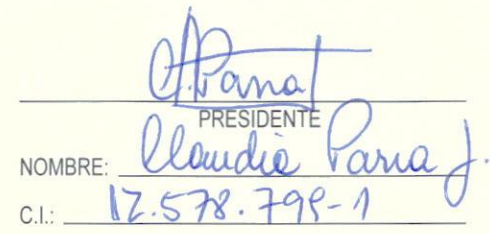 PRESIDENTE
NOMBRE: Claudia Parra J.
C.I.: 12.578.799-1